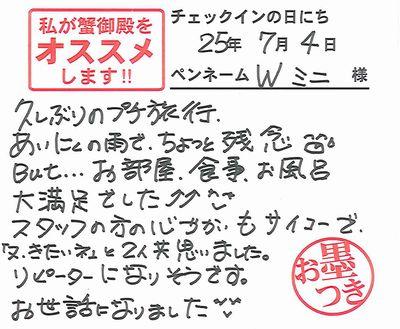 私が蟹御殿を
オススメ
します!!
チェックインの日にち
25年 7月 4日
ペンネーム W ミニ 様
久しぶりのプチ旅行.
あいにくの雨で、ちょっと残念
But... お部屋、食事、お風呂
大満足でした♪♪
スタッフの方の心づかいもサイコーで、
「又、きたいネ」と2人共思いました。
リピーターになりそうです。
お世話になりました
お墨つき